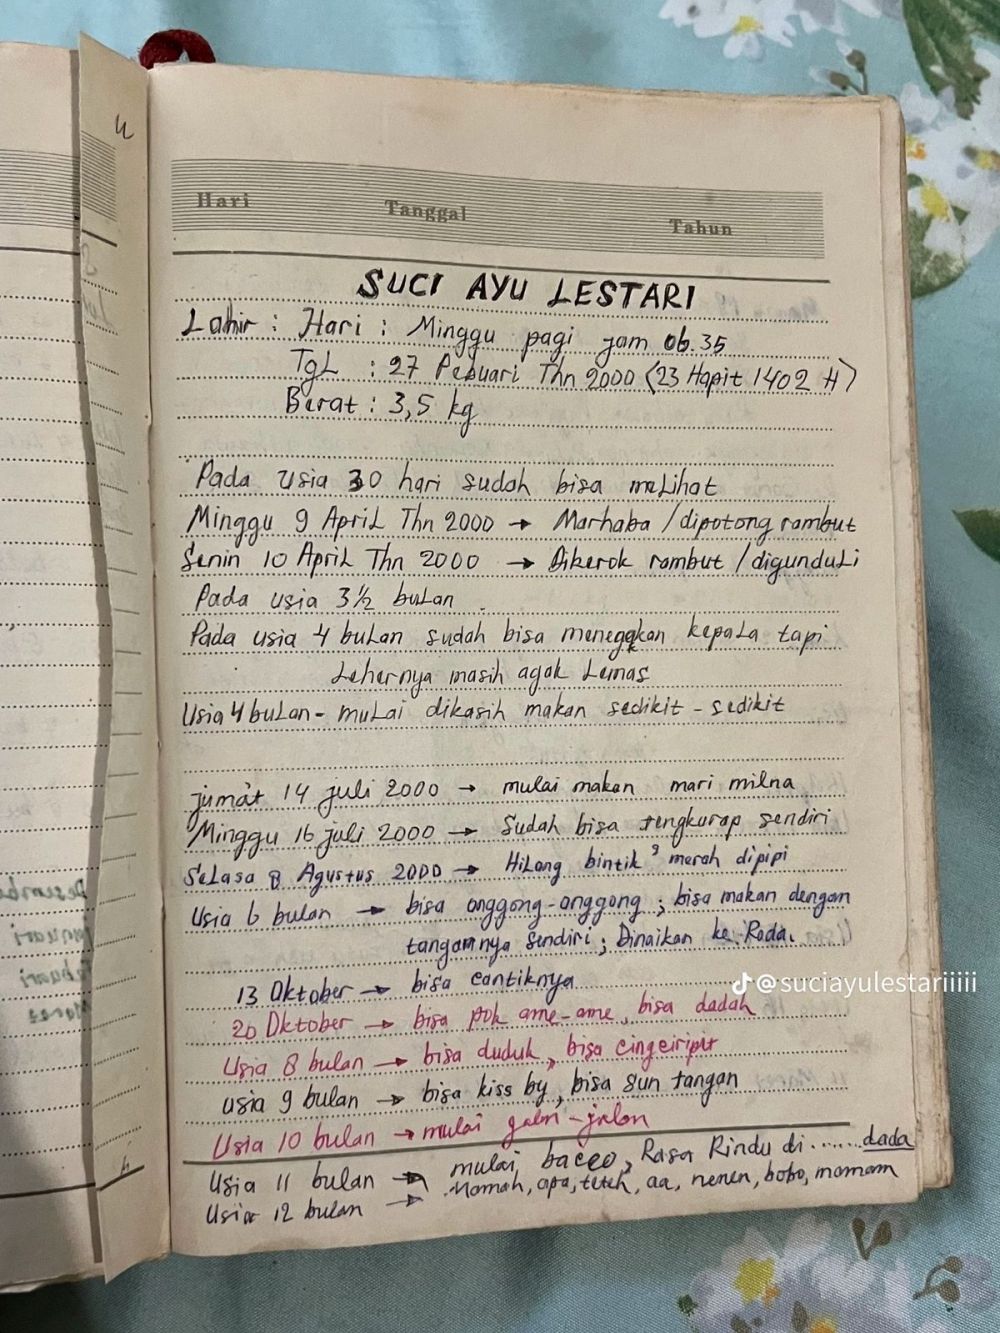 u
Hari Tanggal Tahun
SUCI AYU LESTARI
Lahir : Hari : Minggu pagi jam 06.35
TgL : 27 Pebuari Thn 2000 (23 Hapit 1402 H)
Berat : 3,5 kg
Pada usia 30 hari sudah bisa meLihat
Minggu 9 ApriL Thn 2000 → Marhaba / dipotong rambut
Senin 10 ApriL Thn 2000 → Dikerok rambut / digunduLi
Pada usia 3½ buLan
Pada usia 4 buLan sudah bisa menegakkan kepaLa tapi
Lehernya masih agak Lemas
Usia 4 buLan - muLai dikasih makan sedikit - sedikit
jumat 14 juli 2000 → mulai makan mari milna
Minggu 16 juli 2000 → Sudah bisa tengkurap sendiri
SeLasa 8 Agustus 2000 → HiLang bintik² merah dipipi
Usia 6 bulan → bisa anggong-anggong ; bisa makan dengan
tangannya sendiri ; Dinaikan ke Roda.
13 Oktober → bisa cantiknya
@suciayulestariiiii
20 Oktober → bisa pok ame-ame, bisa dadah
Usia 8 bulan → bisa duduk, bisa
usia 9 bulan → bisa kiss by, bisa sun tangan
Usia 10 bulan → mulai jalan-jalan
Usia 11 bulan → mulai baceo, Rasa Rindu di ...... dada
Usia 12 bulan → Mamah, apa, teteh, aa, nenen, bobo, mamam